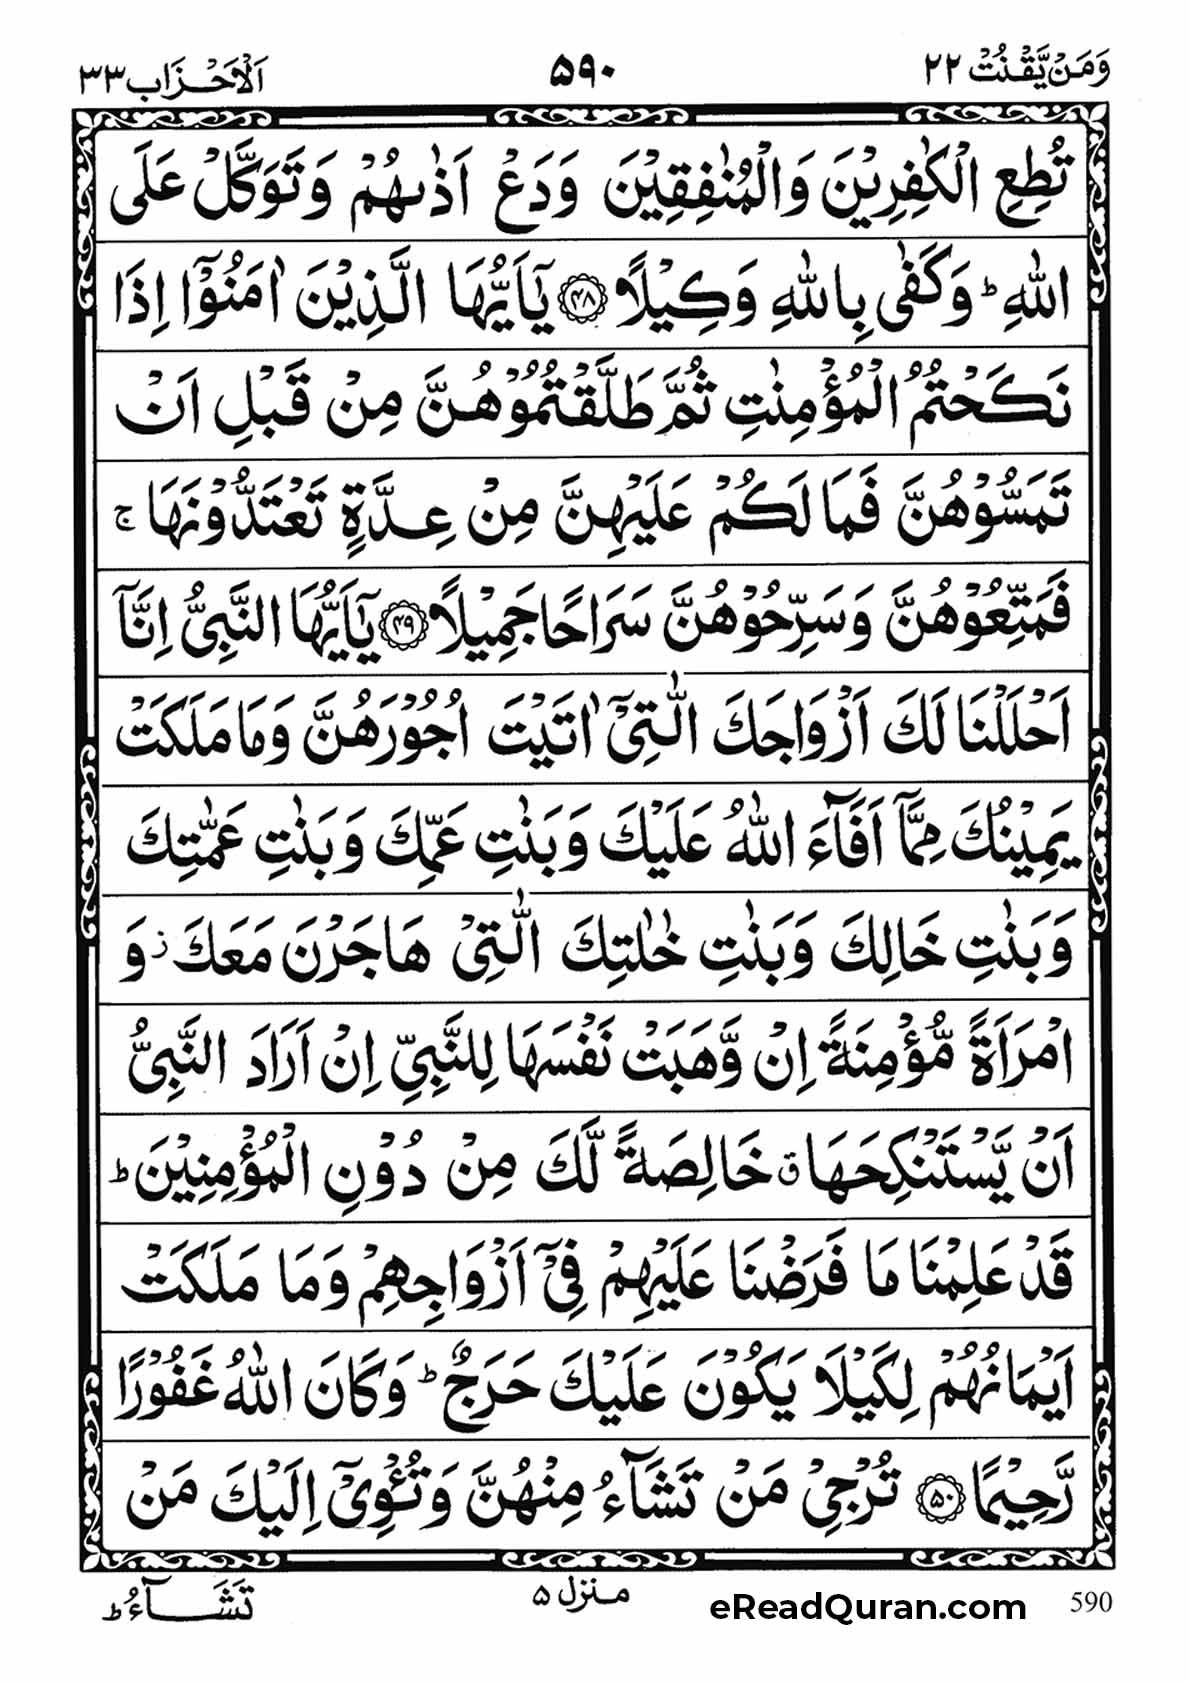 وَمَنْ يَّقْنُتْ ٢٢
٥٩٠
اَلْاَحْزَاب ٣٣
تُطِعِ الْكٰفِرِيْنَ وَالْمُنٰفِقِيْنَ وَدَعْ اَذٰىهُمْ وَتَوَكَّلْ عَلَى
اللّٰهِ ؕ وَكَفٰى بِاللّٰهِ وَكِيْلًا ﴿٤٨﴾ يٰۤاَيُّهَا الَّذِيْنَ اٰمَنُوْۤا اِذَا
نَكَحْتُمُ الْمُؤْمِنٰتِ ثُمَّ طَلَّقْتُمُوْهُنَّ مِنْ قَبْلِ اَنْ
تَمَسُّوْهُنَّ فَمَا لَكُمْ عَلَيْهِنَّ مِنْ عِدَّةٍ تَعْتَدُّوْنَهَا ۚ
فَمَتِّعُوْهُنَّ وَسَرِّحُوْهُنَّ سَرَاحًا جَمِيْلًا ﴿٤٩﴾ يٰۤاَيُّهَا النَّبِيُّ اِنَّاۤ
اَحْلَلْنَا لَكَ اَزْوَاجَكَ الّٰتِيْۤ اٰتَيْتَ اُجُوْرَهُنَّ وَمَا مَلَكَتْ
يَمِيْنُكَ مِمَّاۤ اَفَآءَ اللّٰهُ عَلَيْكَ وَبَنٰتِ عَمِّكَ وَبَنٰتِ عَمّٰتِكَ
وَبَنٰتِ خَالِكَ وَبَنٰتِ خٰلٰتِكَ الّٰتِيْ هَاجَرْنَ مَعَكَ ز وَ
امْرَاَةً مُّؤْمِنَةً اِنْ وَّهَبَتْ نَفْسَهَا لِلنَّبِيِّ اِنْ اَرَادَ النَّبِيُّ
اَنْ يَّسْتَنْكِحَهَا ق خَالِصَةً لَّكَ مِنْ دُوْنِ الْمُؤْمِنِيْنَ ؕ
قَدْ عَلِمْنَا مَا فَرَضْنَا عَلَيْهِمْ فِيْۤ اَزْوَاجِهِمْ وَمَا مَلَكَتْ
اَيْمَانُهُمْ لِكَيْلَا يَكُوْنَ عَلَيْكَ حَرَجٌ ؕ وَكَانَ اللّٰهُ غَفُوْرًا
رَّحِيْمًا ﴿٥٠﴾ تُرْجِيْ مَنْ تَشَآءُ مِنْهُنَّ وَتُـْٔوِيْۤ اِلَيْكَ مَنْ
تَشَآءُ ؕ
منزل ٥
eReadQuran.com
590